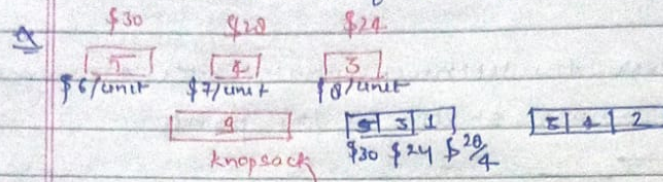 Q $30 $28 $24
5 4 3
$6/unit $7/unit $8/unit
9 5 3 1 5 4 2
knopsack $30 $24 $28/4